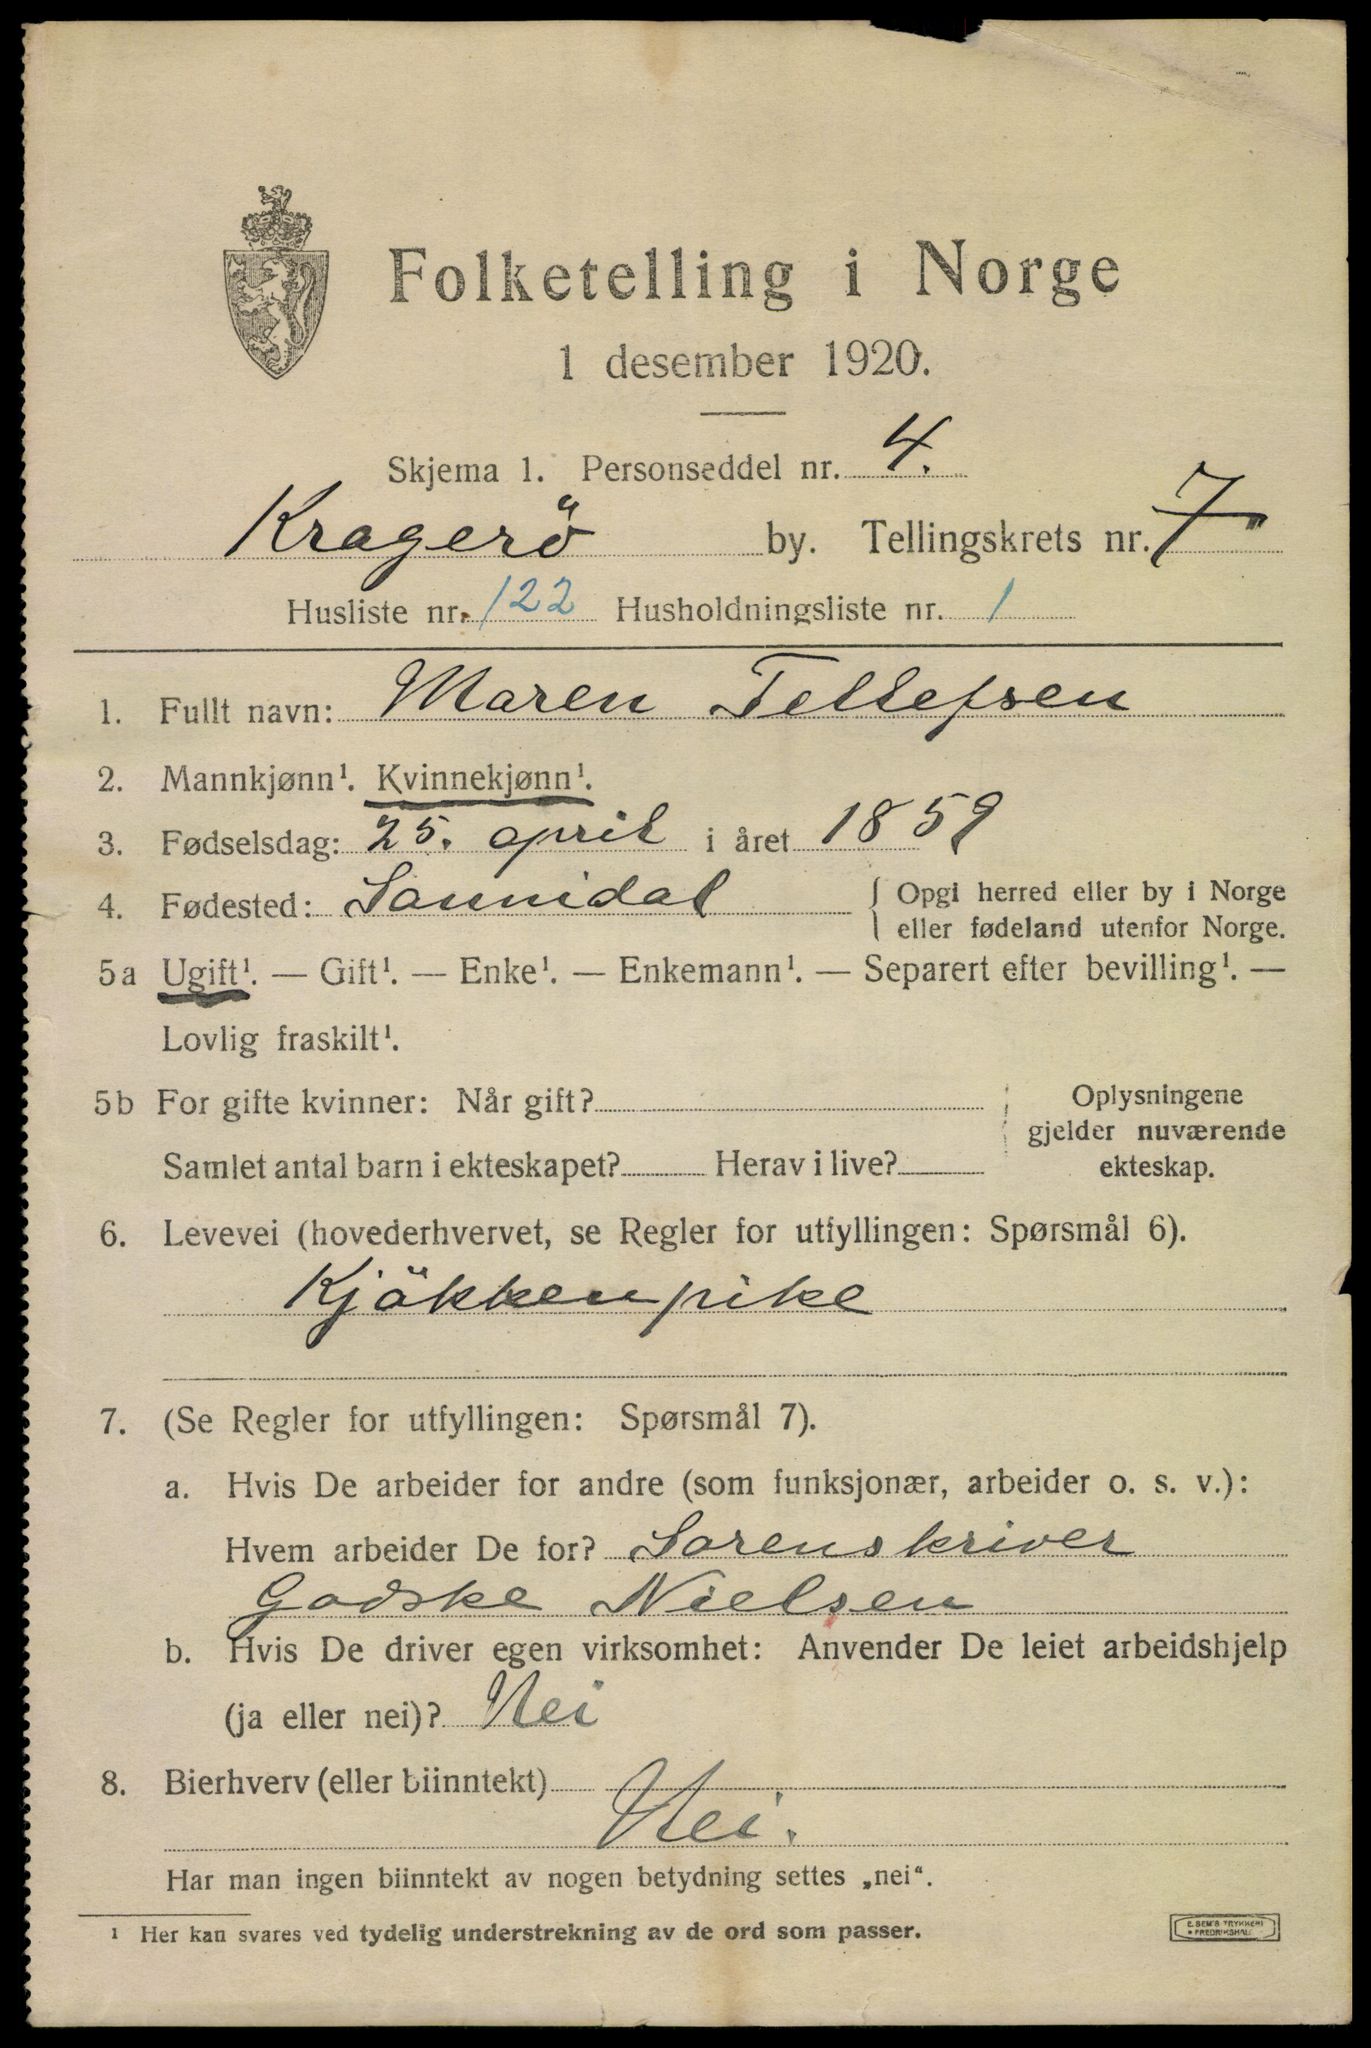 Folketelling i Norge
1 desember 1920.
Skjema 1. Personseddel nr. 4.
Kragerö by. Tellingskrets nr. 7
Husliste nr. 122 Husholdningsliste nr. 1
1. Fullt navn: Maren Tellefsen
2. Mannkjønn¹. Kvinnekjønn¹.
3. Fødselsdag: 25. april i året 1859
4. Fødested: Sannidal { Opgi herred eller by i Norge
eller fødeland utenfor Norge.
5a Ugift¹. — Gift¹. — Enke¹. — Enkemann¹. — Separert efter bevilling¹. —
Lovlig fraskilt¹.
5b For gifte kvinner: Når gift? Oplysningene
gjelder nuværende
Samlet antal barn i ekteskapet? Herav i live? ekteskap.
6. Levevei (hovederhvervet, se Regler for utfyllingen: Spørsmål 6).
Kjökkenpike
7. (Se Regler for utfyllingen: Spørsmål 7).
a. Hvis De arbeider for andre (som funksjonær, arbeider o. s. v.):
Hvem arbeider De for? Sorenskriver
Godske Nielsen
b. Hvis De driver egen virksomhet: Anvender De leiet arbeidshjelp
(ja eller nei)? Nei
8. Bierhverv (eller biinntekt)
Nei.
Har man ingen biinntekt av nogen betydning settes „nei“.
¹ Her kan svares ved tydelig understrekning av de ord som passer.
E. SEM'S TRYKKERI
FREDRIKSHALD